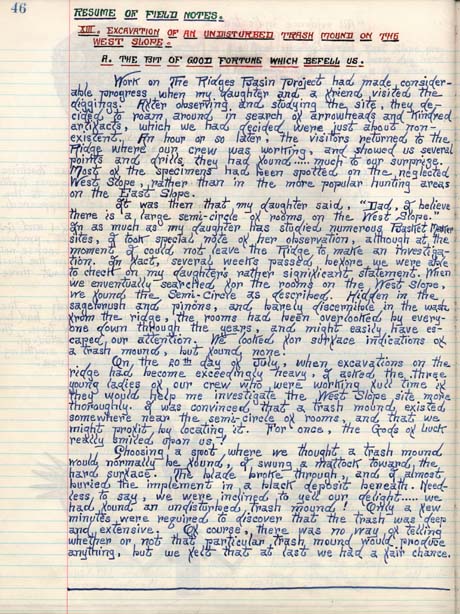 46
RESUME OF FIELD NOTES.
XIII. EXCAVATION OF AN UNDISTURBED TRASH MOUND ON THE
WEST SLOPE.
A. THE BIT OF GOOD FORTUNE WHICH BEFELL US.
Work on The Ridges Basin Project had made consider-
able progress when my daughter and a friend visited the
diggings. After observing and studying the site, they de-
cided to roam around in search of arrowheads and kindred
artifacts, which we had decided were just about non-
existent. An hour or so later, the visitors returned to the
Ridge where our crew was working, and showed us several
points and drills they had found..... much to our surprise.
Most of the specimens had been spotted on the neglected
West Slope, rather than in the more popular hunting areas
on the East Slope.
It was then that my daughter said, "Dad, I believe
there is a large semi-circle of rooms on the West Slope."
In as much as my daughter has studied numerous Basket Maker
sites, I took special note of her observation, although at the
moment I could not leave the ridge to make an investiga-
tion. In fact, several weeks passed before we were able
to check on my daughter's rather significant statement. When
we enventually searched for the rooms on the West Slope,
we found the Semi-Circle as described. Hidden in the
sagebrush and pinons, and barely discernible in the
from the ridge, the rooms had been overlooked by every-
one down through the years, and might easily have es-
caped our attention. We looked for surface indications of
a trash mound, but found none.
On the 20th day of July, when excavations on the
ridge had become exceedingly heavy, I asked the three
young ladies of our crew who were working full time if
they would help me investigate the West Slope site more
thoroughly. I was convinced that a trash mound existed
somewhere near the semi-circle of rooms, and that we
might profit by locating it. For once, the Gods of luck
really smiled upon us!
Choosing a spot where we thought a trash mound
would normally be found, I swung a mattock toward the
hard surface. The blade broke through, and I almost
buried the implement in a black deposit beneath. Need-
less to say, we were inclined to yell our delight..... we
had found an undisturbed trash mound! Only a few
minutes were required to discover that the trash was deep
and extensive. Of course, there was no way of telling
whether or not that particular trash mound would produce
anything, but we felt that at last we had a fair chance.